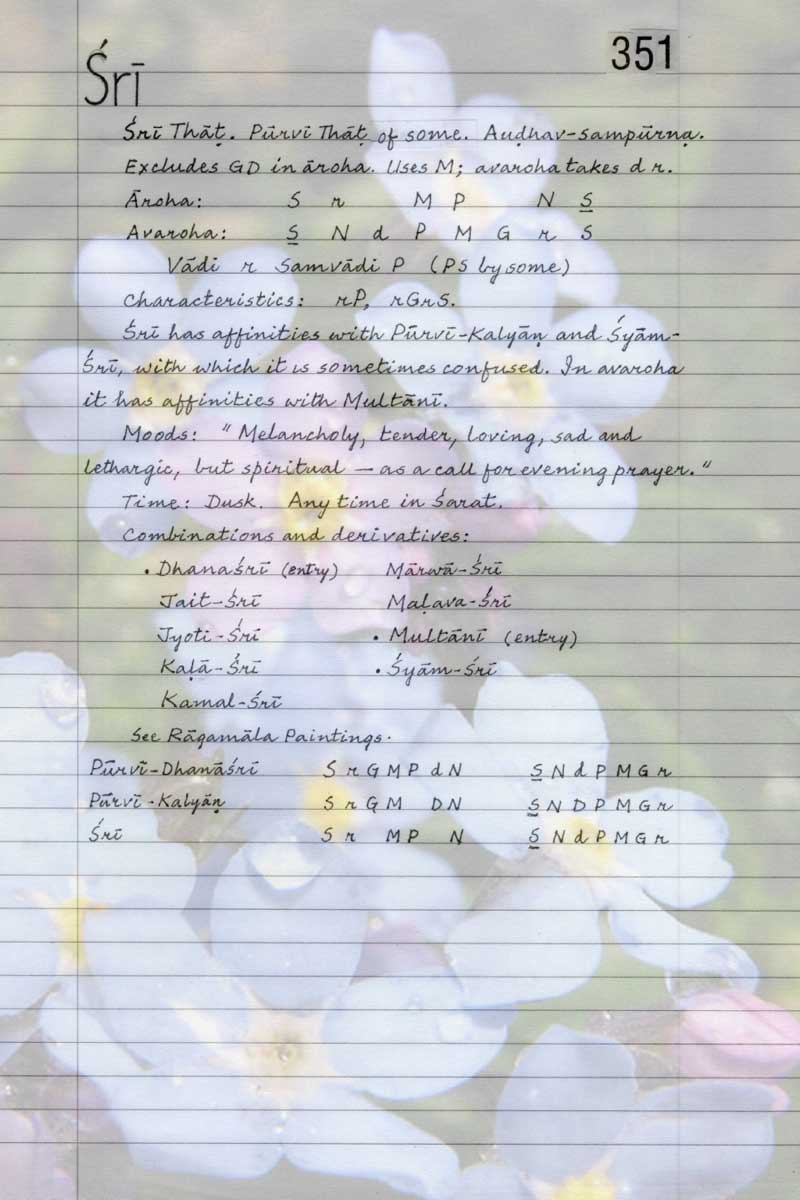 351
Śrī
Śrī Thāṭ. Pūrvī Thāṭ of some. Auḍhav-sampūrṇa.
Excludes GD in āroha. Uses M; avaroha takes d r.
Āroha: S r M P N S
Avaroha: S N d P M G r S
Vādi r Samvādi P (PS by some)
Characteristics: rP, rGrS.
Śrī has affinities with Pūrvī-Kalyāṇ and Śyām-
Śrī, with which it is sometimes confused. In avaroha
it has affinities with Multānī.
Moods: "Melancholy, tender, loving, sad and
lethargic, but spiritual — as a call for evening prayer."
Time: Dusk. Any time in Śarat.
Combinations and derivatives:
• Dhanaśrī (entry) Mārwā-Śrī
Jait-Śrī Maḷava-Śrī
Jyoti-Śrī • Multānī (entry)
Kaḷā-Śrī • Śyām-Śrī
Kamal-Śrī
See Rāgamāla Paintings.
Pūrvī-Dhanāśrī S r G M P d N S N d P M G r
Pūrvī-Kalyāṇ S r G M D N S N D P M G r
Śrī S r M P N S N d P M G r